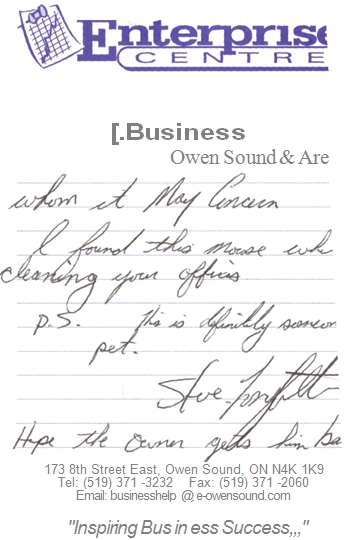 Enterprise
CENTRE
[.Business
Owen Sound & Are
whom it May Concern
I found this mouse whi
cleaning your offices
P.S. This is definitily someon
pet.
Steve
Hope the Owner gets him ba
173 8th Street East, Owen Sound, ON N4K 1K9
Tel: (519) 371 -3232 Fax: (519) 371 -2060
Email: businesshelp @ e-owensound.com
"Inspiring Bus in ess Success,,,"